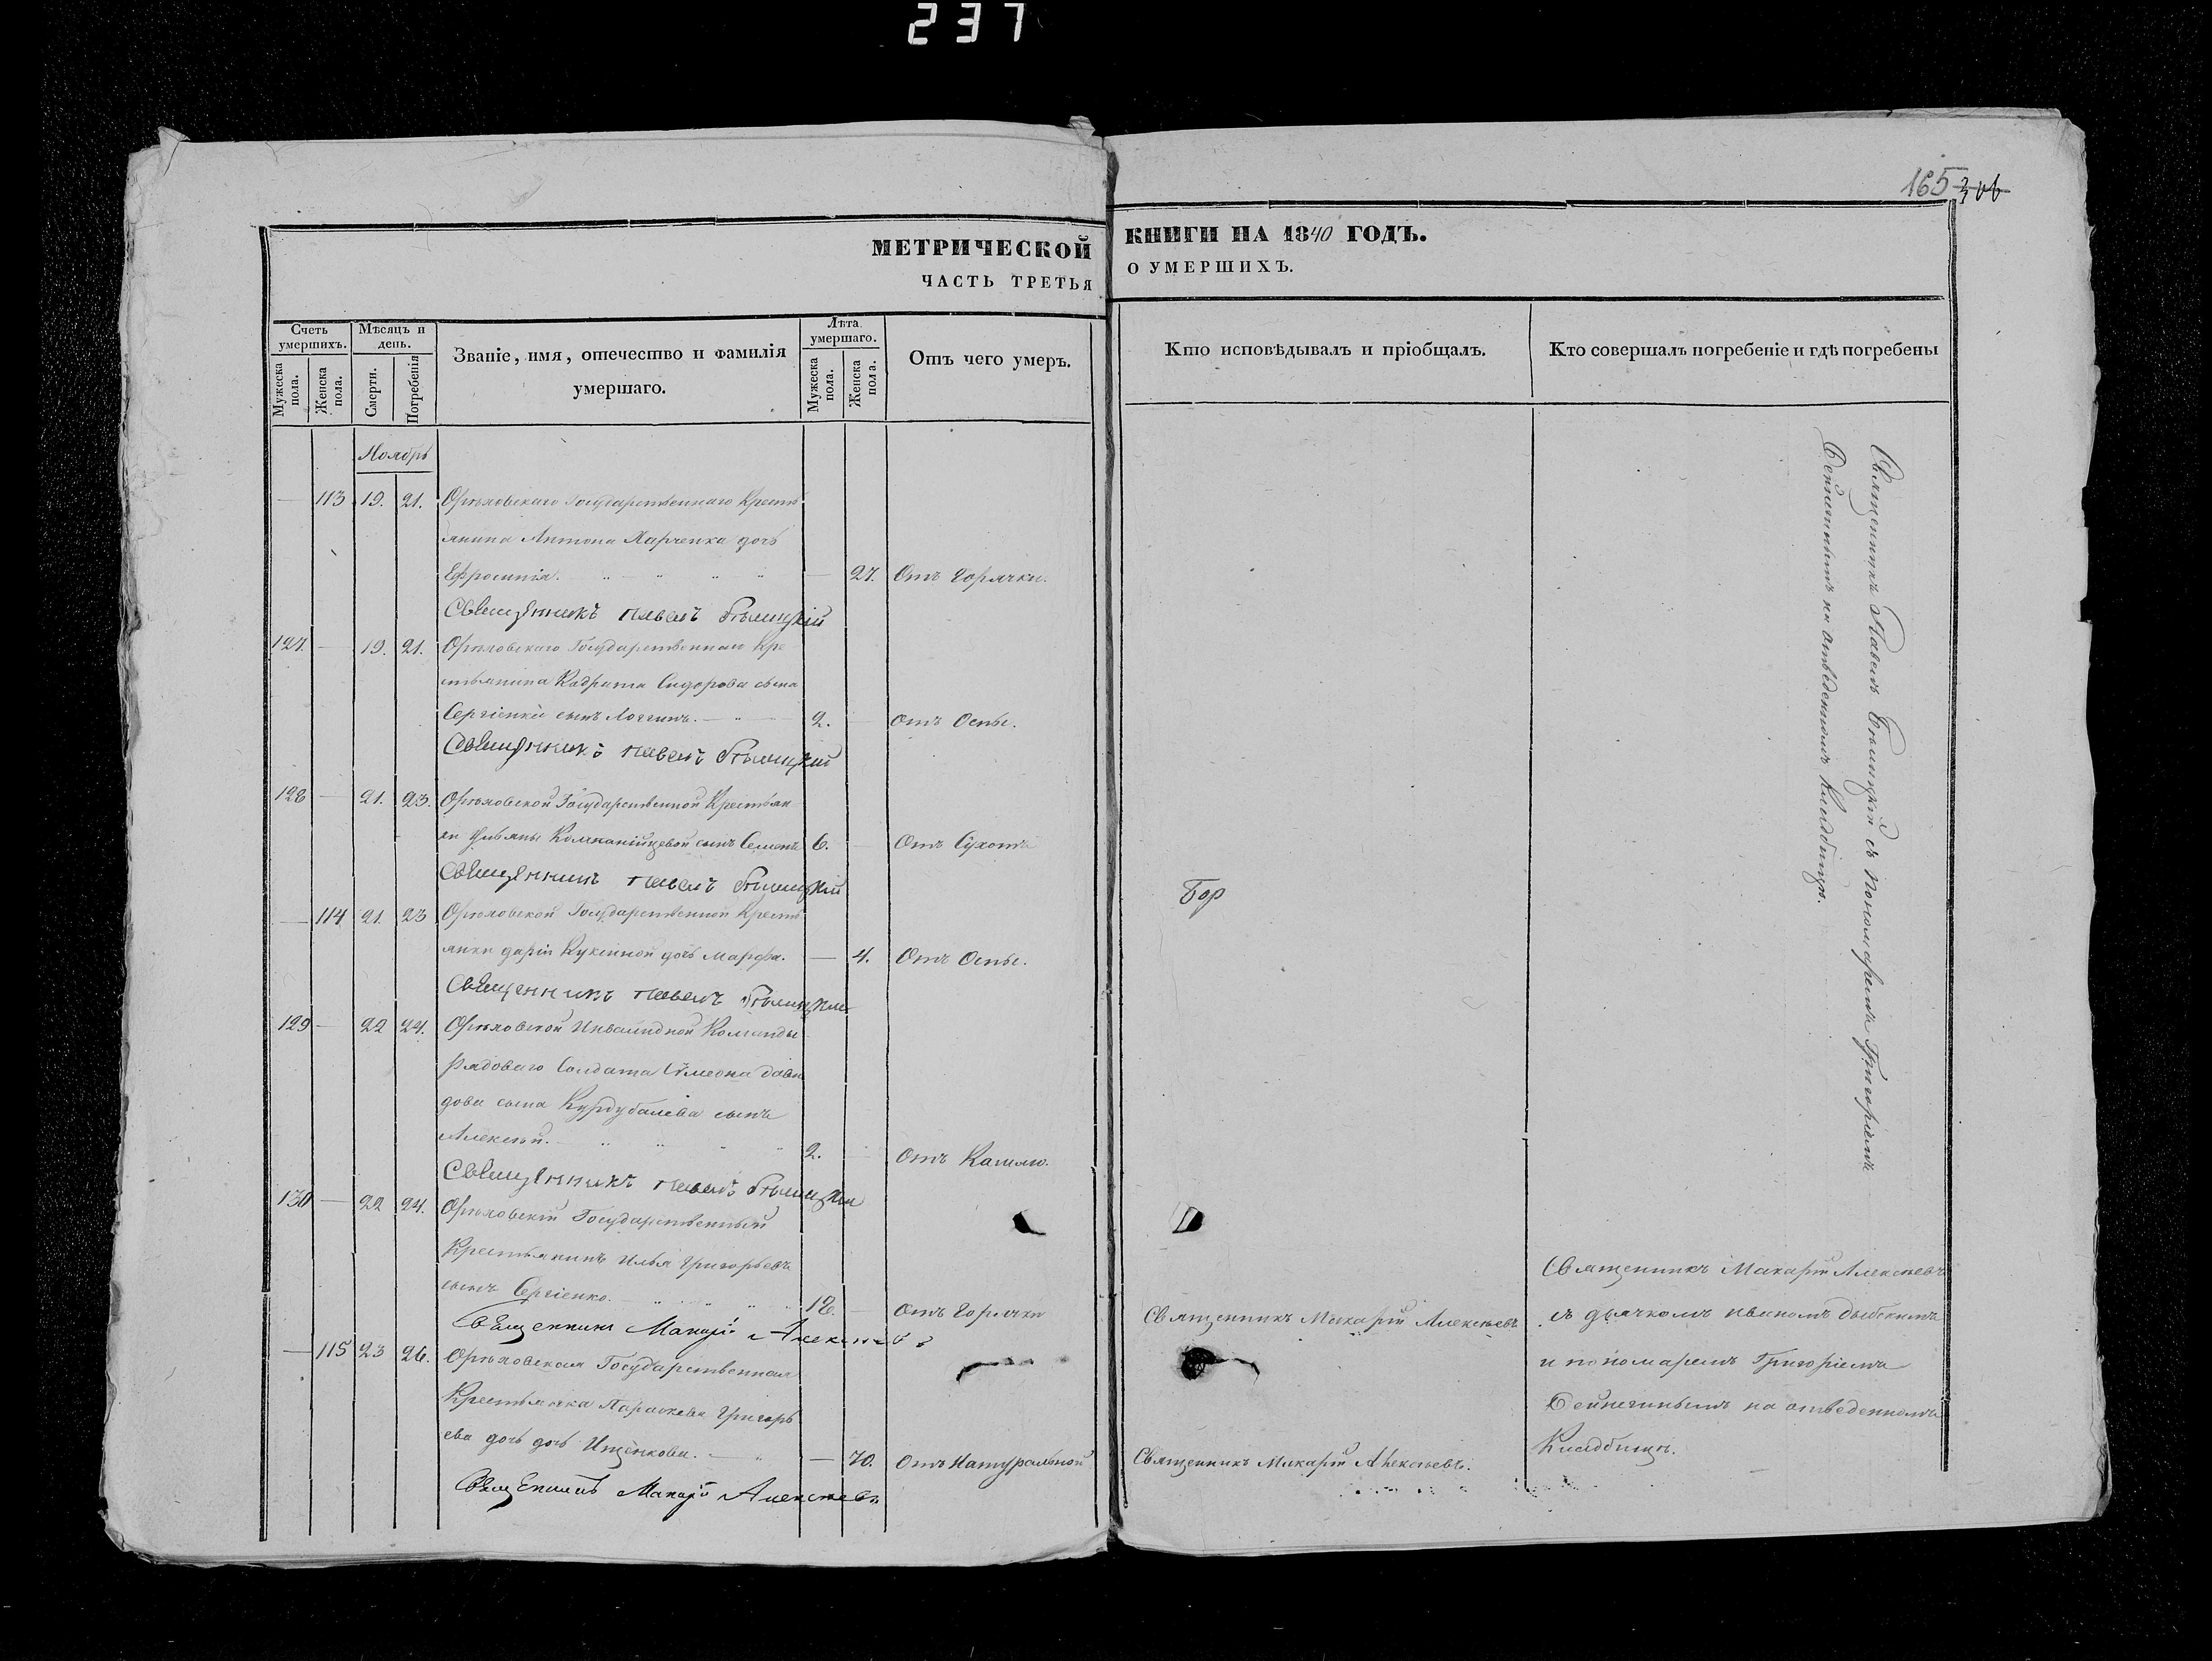 237
165 306
МЕТРИЧЕСКОЙ КНИГИ НА 1840 ГОДЪ.
ЧАСТЬ ТРЕТЬЯ О УМЕРШИХЪ.
Счетъ умершихъ.
Мужеска пола.
Женска пола.
Мѣсяцъ и день.
Смерти.
Погребенія
Званіе, имя, отечество и фамилія
умершаго.
Лѣта умершаго.
Мужеска пола.
Женска пола.
Отъ чего умеръ.
Кто исповѣдывалъ и пріобщалъ.
Кто совершалъ погребеніе и гдѣ погребены
Ноябрь
— 113 19. 21. Орѣховскаго Государственнаго Кресть
янина Антона Харченка дочь
Ефросинія. — 27. Отъ Горячки.
Священникъ Павелъ Бѣлицкій
127. — 19. 21. Орѣховскаго Государственнаго Кре
стьянина Кодрата Сидорова сына
Сергіенка сынъ Логгинъ. — 2. — отъ Оспы.
Священникъ Павелъ Бѣлицкій
128 — 21. 23. Орѣховской Государственной Крестьян
ки Ульяны Компанійцевой сынъ Семенъ 6. — Отъ Сухотъ
Священникъ Павелъ Бѣлицкій
— 114 21. 23 Орѣховской Государственной Кресть
янки Даріи Куксиной дочь Марфа. — 4. Отъ Оспы.
Священникъ Павелъ Бѣлицкій
129 — 22 24. Орѣховской Инвалидной Команды
Рядоваго Солдата Сѵмеона Дави
дова сына Курдубалева сынъ
Алексѣй. 2. — Отъ Кашлю.
Священникъ Павелъ Бѣлицкій
130 — 22 24. Орѣховскій Государственный
Крестьянинъ Илья Григорьевъ
сынъ Сергіенко. 18. — Отъ Горячки
Священникъ Макарій Алексѣевъ
— 115 23 26. Орѣховская Государственная
Крестьянка Параскева Григорь
ева дочь дочь Ищенкова. — 70. Отъ Натуральной
Священникъ Макарій Алексѣевъ
Бор
Священникъ Макарій Алексѣевъ
Священникъ Макарій Алексѣевъ.
Священникъ Павелъ Бѣлицкій съ Пономаремъ Григоріемъ
Дейнегинымъ на отведенномъ Кладбищѣ.
Священникъ Макарій Алексѣевъ
съ дьячкомъ Иваномъ
и пономаремъ Григоріемъ
Дейнегинымъ на отведенномъ
Кладбищѣ.